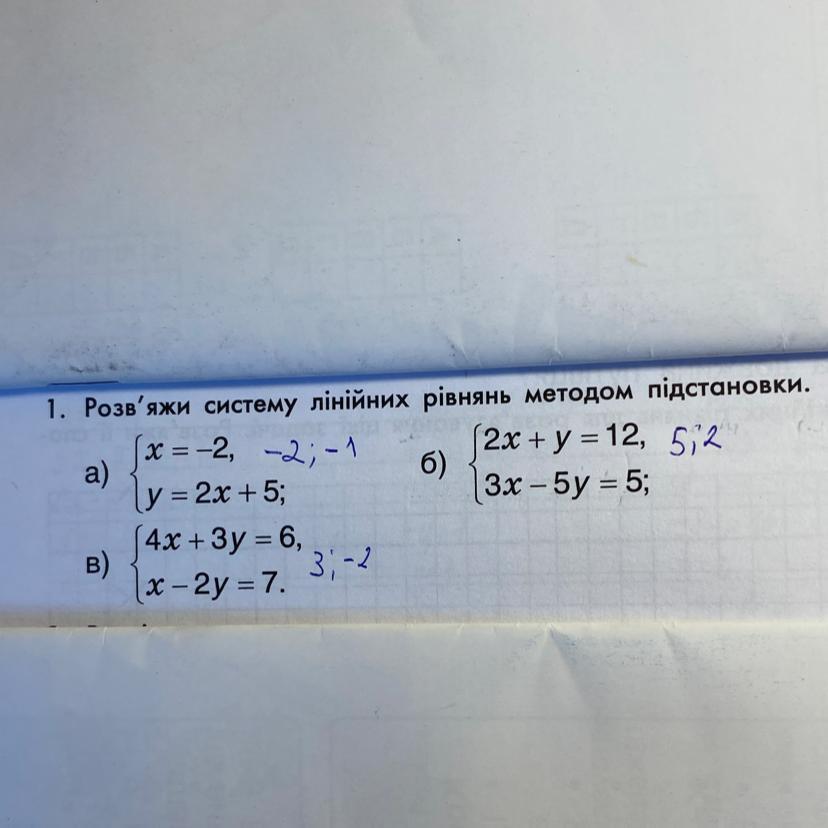 1. Розв'яжи систему лінійних рівнянь методом підстановки.
а) x = –2, -2; -1
y = 2x + 5;
б) 2x + y = 12, 5; 2
3x – 5y = 5;
в) 4x + 3y = 6,
x – 2y = 7. 3; -2